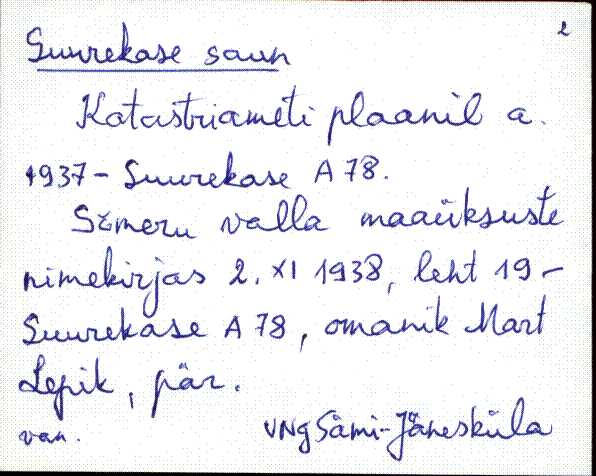 2
Suurekase saun
Katastriameti plaanil a.
1937 - Suurekase A 78.
Sõmeru valla maaüksuste
nimekirjas 2. XI 1938, leht 19 -
Suurekase A 78, omanik Mart
Lepik, pär.
van.
VNg Sämi-Jänesküla